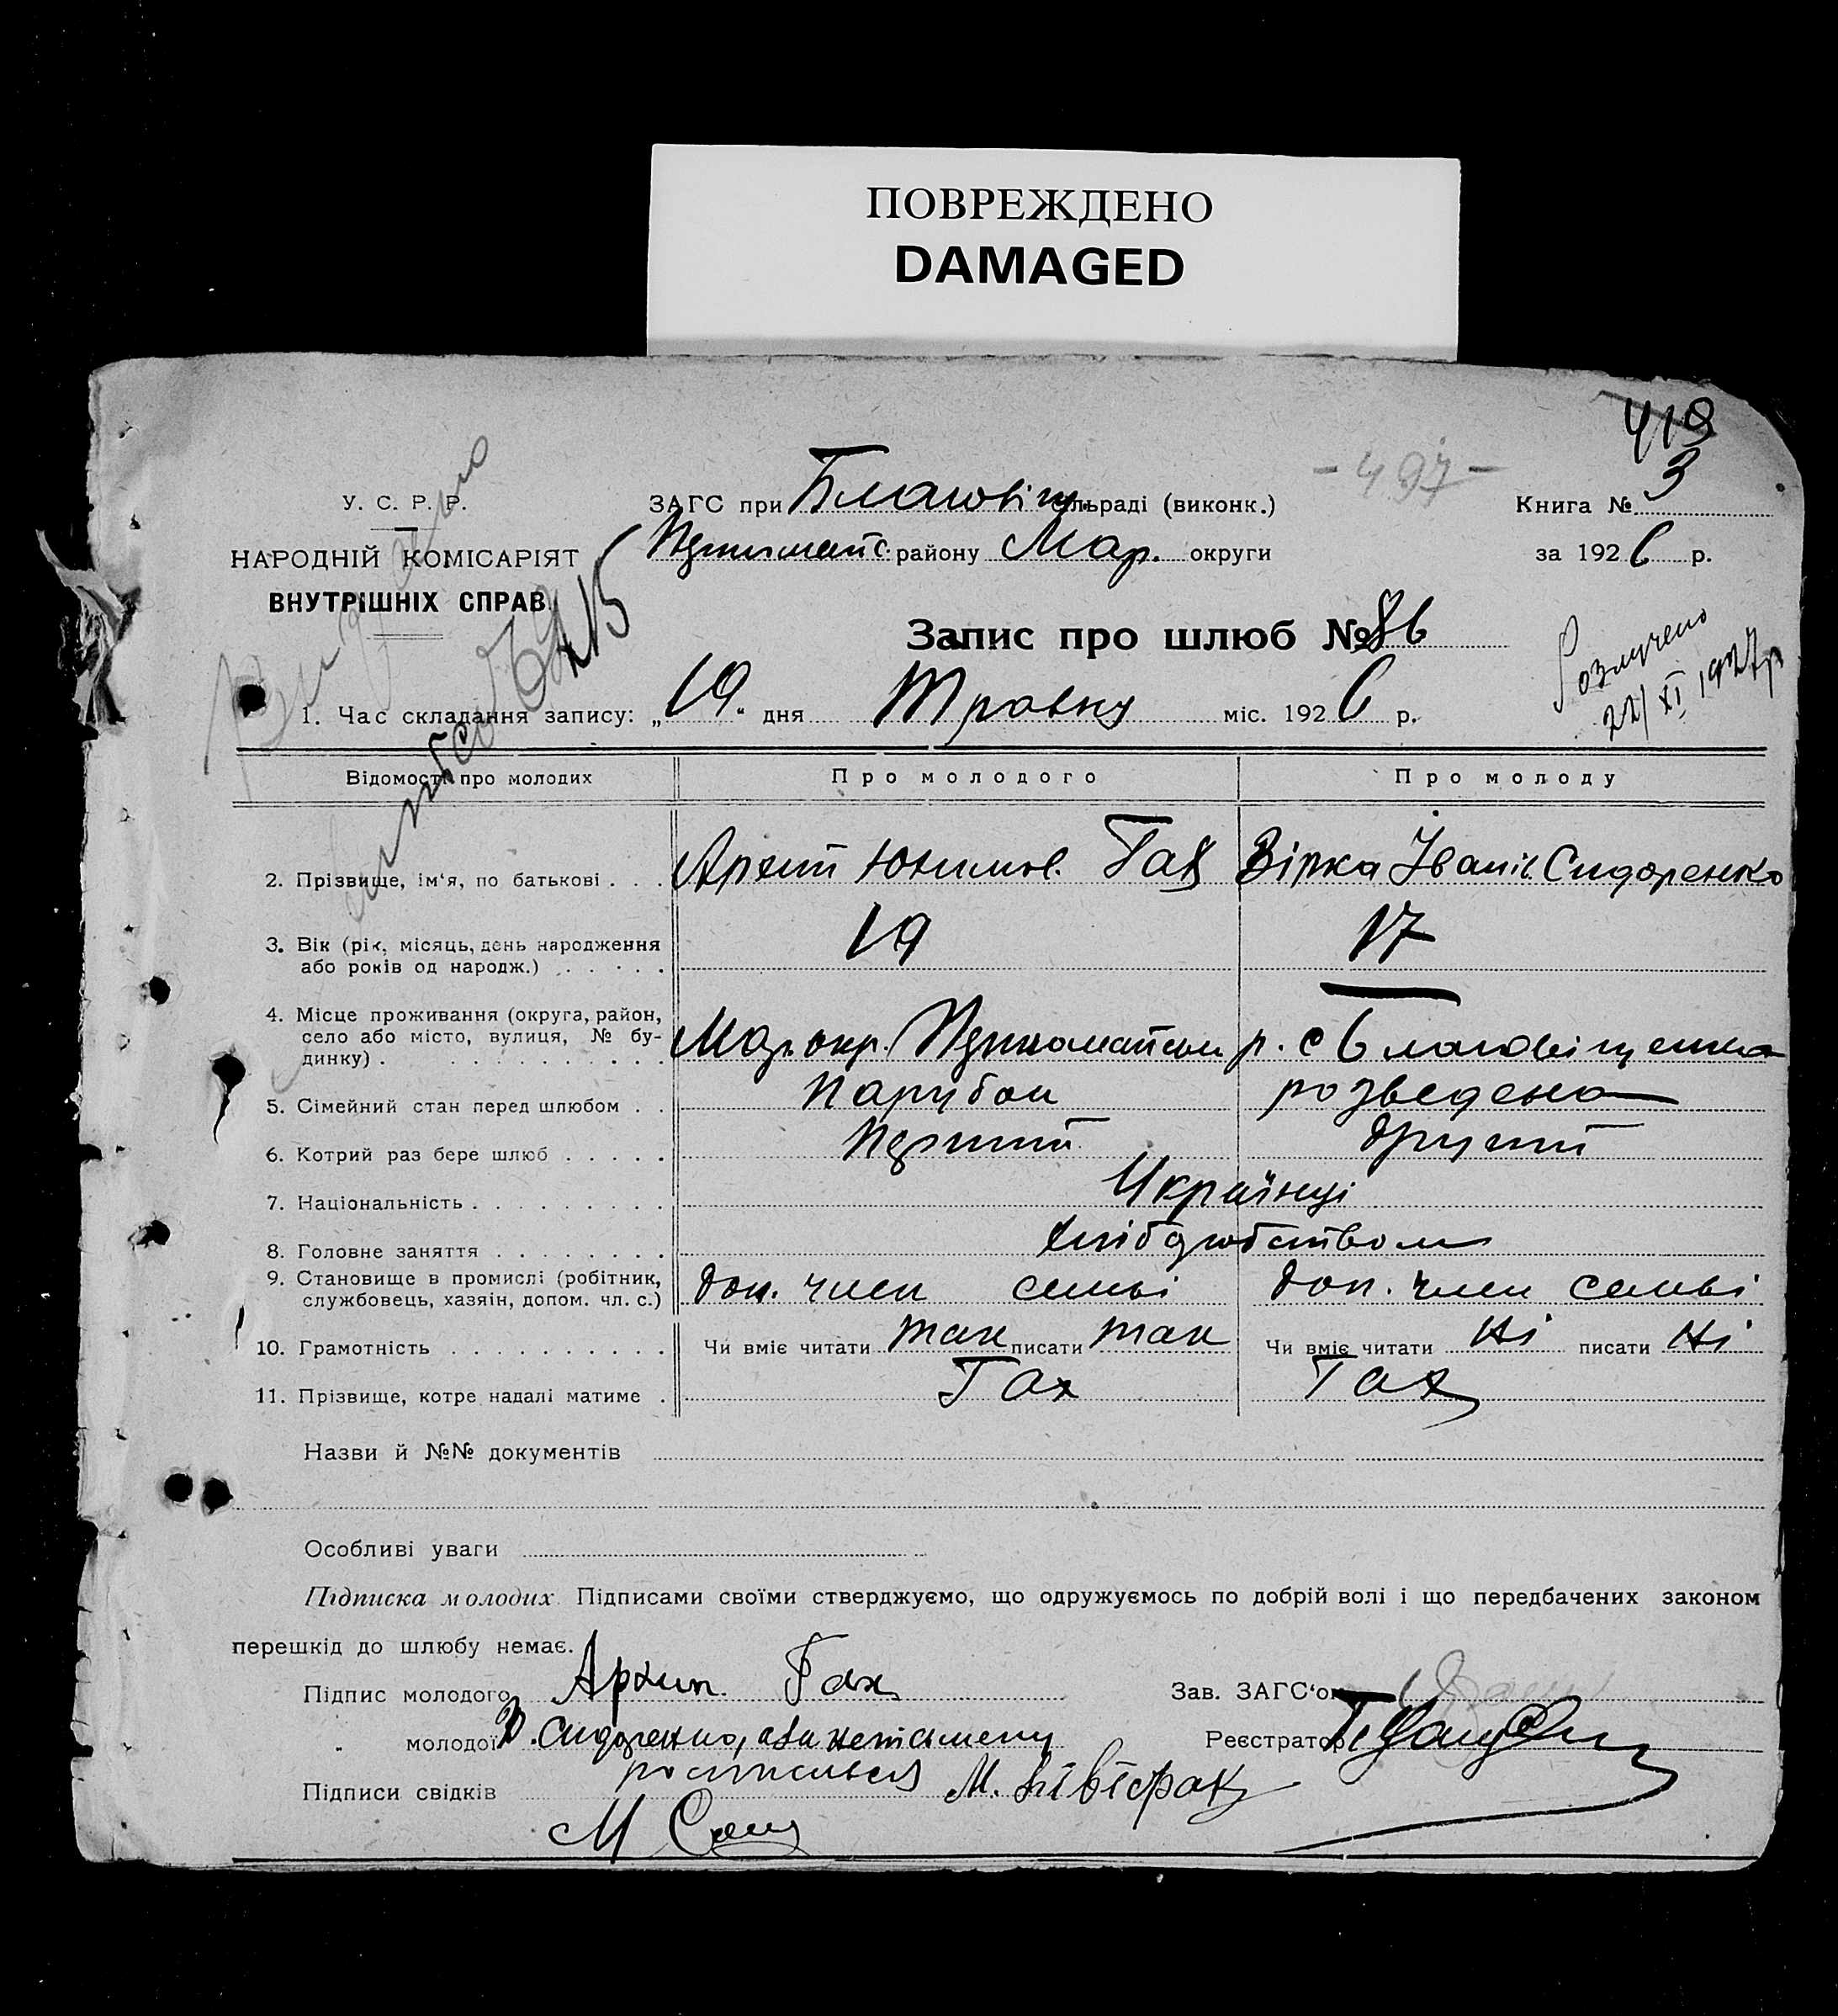 ПОВРЕЖДЕНО
DAMAGED
419
- 497 -
У. С. Р. Р.
НАРОДНІЙ КОМІСАРІЯТ
ВНУТРІШНІХ СПРАВ
ЗАГС при Благовіщ. сільраді (виконк.)
Першомайс. району Мар. округи
Книга № 3
за 1926 р.
Запис про шлюб № 86
Розлучено
22/XI 1927р
1. Час складання запису: „19" дня Травня міс. 1926 р.
Відомості про молодих Про молодого Про молоду
2. Прізвище, ім'я, по батькові . . . Архип Юхимов. Гах Вірка Іванів. Сидоренко
3. Вік (рік, місяць, день народження
або років од народж.) . . . . . 19 17
4. Місце проживання (округа, район,
село або місто, вулиця, № бу-
динку) . . . . . . . . . Мар. окр. Першомайськ р. с Благовіщенка
5. Сімейний стан перед шлюбом . . Парубок розведена
6. Котрий раз бере шлюб . . . . . Перший другий
7. Національність . . . . . . . . . Українці
8. Головне заняття . . . . . . . . хліборобством
9. Становище в промислі (робітник,
службовець, хазяін, допом. чл. с.) доп. член семьі доп. член семьі
10. Грамотність . . . . . . . . . . Чи вміє читати так писати так Чи вміє читати Ні писати Ні
11. Прізвище, котре надалі матиме . Гах Гах
Назви й №№ документів
Особливі уваги
Підписка молодих Підписами своїми стверджуємо, що одружуємось по добрій волі і що передбачених законом
перешкід до шлюбу немає.
Підпис молодого Архип Гах Зав. ЗАГС'ом
" молодої В. Сидоренко, а за неписьмену Реєстратор
росписався
Підписи свідків М.
М